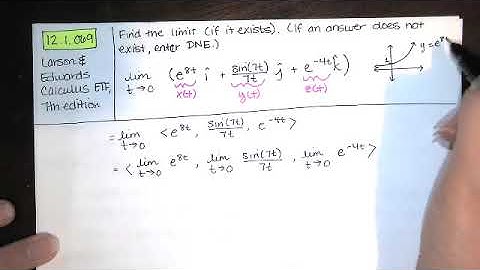 12.1.069
Larson &
Edwards
Calculus ETF,
7th edition
Find the limit (if it exists). (If an answer does not
exist, enter DNE.)
lim t→0 (e^{8t} î + sin(7t)/7t ĵ + e^{-4t} k̂)
x(t) y(t) z(t)
y=e^{8t}
1
= lim t→0 <e^{8t}, sin(7t)/7t, e^{-4t}>
= <lim t→0 e^{8t}, lim t→0 sin(7t)/7t, lim t→0 e^{-4t}>